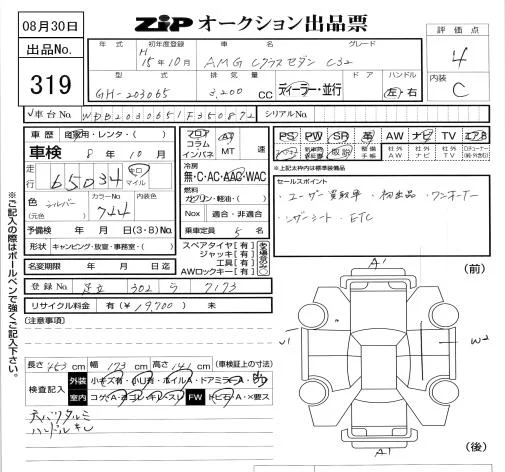 08月30日
ZIP オークション出品票
出品No. 319
年式 初年度登録 車名 グレード
H 15年10月 AMG Cクラスセダン C32
型式 排気量 ドア ハンドル
GH-203065 3,200 CC ディーラー・並行 左 右
評価点 4
内装 C
車台No. WDB2030651F350872 シリアルNo.
車歴 自家用・レンタ・( )
車検 8年 10月
走行 65034 キロ マイル
色 シルバー (元色) カラーNo 744 内装色
予備検 年 月 日(3・8)No.
形状 キャンピング・放宣・事務室・( )
名変期限 年 月 日迄
フロア コラム インパネ AT MT 速
冷房 無・C・AC・AAC・WAC
燃料 ガソリン・軽油・( )
Nox 適合・非適合
乗車定員 5 名
スペアタイヤ[有]
ジャッキ[有]
工具[有]
AWロックキー[有]
PS PW SR 革 AW ナビ TV エアB
取説 整備手帳 社外AW 社外ナビ 社外TV
※上記太枠内は標準装備品
セールスポイント
・ユーザー買取車 ・初出品 ・ワンオーナー
・レザーシート ・ETC
登録No. 足立 302 ら 7173
リサイクル料金 有(¥ 19,700) 未
(注意事項)
長さ 453 cm 幅 173 cm 高さ 141 cm (車検証上の寸法)
検査記入 外装 小キズ有・小凹有・ホイルA・ドアミラーA・
室内 コゲ・A・ヨゴレ・キレ・スレ FW トビ石・A・×要ス
天バリタルミ
ハンドルキレ
※ご記入の際はボールペンで強くご記入下さい。
(前)
A1
W2
A1
(後)